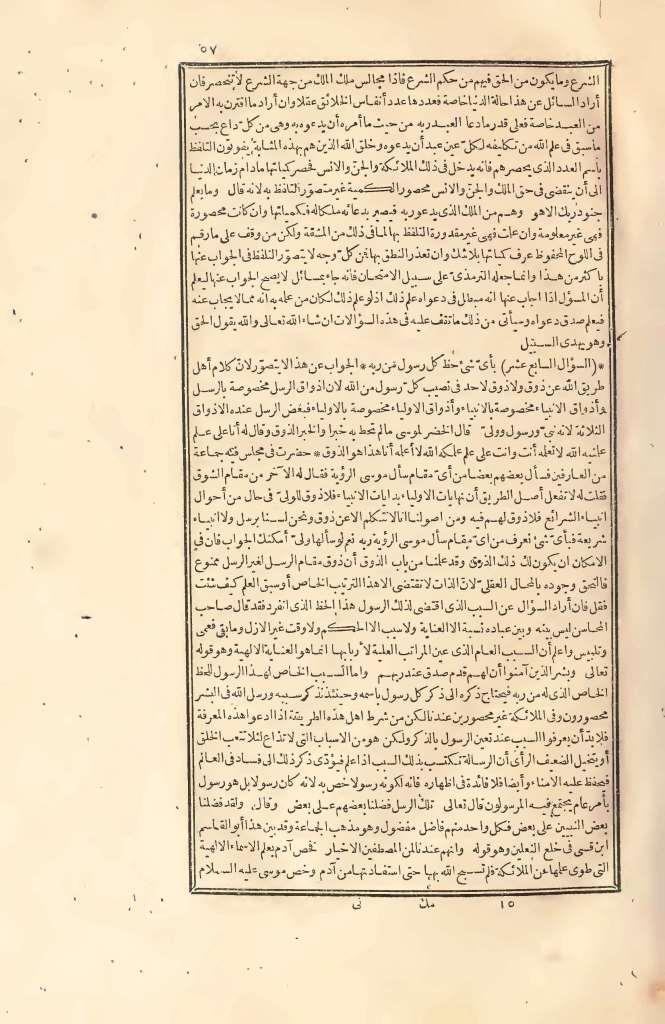 ٥٧
الشرع وما يكون من الحق فيهم من حكم الشرع فاذا مجالس ملك الملك من جهة الشرع لا تنحصر فان
أراد السائل عن هذا حالة الدنيا خاصة فعددها عدد أنفاس الخلائق عقلا وان أراد ما اقترن به الامر
من العبد خاصة فعلى قدر ما دعا العبد ربه من حيث ما أمره أن يدعوه به وهى من كل داع بحسب
ما سبق فى علم الله من تكليفه لكل عين عبد أن يدعوه وخلق الله الذين هم بهذه المثابة يفوتون التلفظ
باسم العدد الذى يحصرهم فانه يدخل فى ذلك الملائكة والجن والانس فحصر كميا تها ما دام زمان الدنيا
الى أن ينقضى فى حق الملك والجن والانس محصور الكمية غير متصور التلفظ به لانه قال وما يعلم
جنود ربك الا هو وهم من الملك الذى يدعو ربه فيصير بدعائه ملكا له فكمياتها وان كانت محصورة
فهى غير معلومة وان علمت فهى غير مقدورة التلفظ بها لما فى ذلك من المشقة ولكن من وقف على ما رقم
فى اللوح المحفوظ عرف كمياتها بلا شك وان تعذر النطق بها فمن كل وجه لا يتصور التلفظ فى الجواب عنها
بأكثر من هذا وانما جعله الترمذى على سبيل الامتحان فانه جاء بمسائل لا يصح الجواب عنها ليعلم
أن المسؤل اذا أجاب عنها انه مبطل فى دعواه علم ذلك اذ لو علم ذلك لكان من علمه به انه مما لا يجاب عنه
فيعلم صدق دعواه وسيأتى من ذلك ما تقف عليه فى هذه السؤالات ان شاء الله تعالى والله يقول الحق
وهو يهدى السبيل
* (السؤال السابع عشر) بأى شئ حظ كل رسول من ربه * الجواب عن هذا لا يتصور لان كلام أهل
طريق الله عن ذوق ولا ذوق لاحد فى نصيب كل رسول من الله لان أذواق الرسل مخصوصة بالرسل
وأذواق الانبياء مخصوصة بالانبياء وأذواق الاولياء مخصوصة بالاولياء فبعض الرسل عنده الاذواق
الثلاثة لانه نبى ورسول وولى قال الخضر لموسى ما لم تحط به خبرا والخبر الذوق وقال له أنا على علم
علمنيه الله لا تعلمه أنت وانت على علم علمكه الله لا أعلمه أنا هذا هو الذوق * حضرت فى مجلس فيه جماعة
من العارفين فسأل بعضهم بعضا من أى مقام سأل موسى الرؤية فقال له الآخر من مقام الشوق
فقلت له لا تفعل أصل الطريق أن نهايات الاولياء بدايات الانبياء فلا ذوق للولى فى حال من أحوال
انبياء الشرائع فلا ذوق لهم فيه ومن اصولنا انا لا نتكلم الا عن ذوق ونحن لسنا برسل ولا انبياء
شريعة فبأى شئ نعرف من اى مقام سأل موسى الرؤية ربه نعم لو سألها ولى أمكنك الجواب فان فى
الامكان ان يكون لك ذلك الذوق وقد علمنا من باب الذوق أن ذوق مقام الرسل لغير الرسل ممنوع
فالتحق وجوده بالمحال العقلى لان الذات لا تقتضى الا هذا الترتيب الخاص أو سبق العلم كيف شئت
فقل فان أراد السؤال عن السبب الذى اقتضى لذلك الرسول هذا الحظ الذى انفرد فقد قال صاحب
المحاسن ليس بينه وبين عباده نسبة الا العناية ولا سبب الا الحكم ولا وقت غير الازل وما بقى فعمى
وتلبيس واعلم أن السبب العام الذى عين المراتب العلية لاربابها انما هو العناية الالهية وهو قوله
تعالى وبشر الذين آمنوا أن لهم قدم صدق عند ربهم واما السبب الخاص لهذا الرسول للحظ
الخاص الذى له من ربه فيحتاج ذكره الى ذكر كل رسول باسمه وحينئذ نذكر سببه ورسل الله فى البشر
محصورون وفى الملائكة غير محصورين عندنا لكن من شرط اهل هذه الطريقة اذا ادعوا هذه المعرفة
فلا بد أن يعرفوا السبب عند تعين الرسول بالذكر ولكن هو من الاسباب التى لا تذاع لئلا تتعب الخلق
أو يتخيل الضعيف الرأى أن الرسالة تكتسب بذلك السبب اذا علم فيؤدى ذكر ذلك الى فساد فى العالم
فيحفظ عليه الامناء وأيضا فلا فائدة فى اظهاره فانه لكونه رسولا خص به لانه كان رسولا بل هو رسول
بأمر عام يجتمع فيه المرسلون قال تعالى تلك الرسل فضلنا بعضهم على بعض وقال ولقد فضلنا
بعض النبيين على بعض فكل واحد منهم فاضل مفضول وهو مذهب الجماعة وقد بين هذا أبو القاسم
ابن قسى فى خلع النعلين وهو قوله وانهم عندنا لمن المصطفين الاخيار فخص آدم بعلم الاسماء الالهية
التى طوى علمها عن الملائكة فلم تسبح الله بها حتى استفادتها من آدم وخص موسى عليه السلام
١٥ مك نى